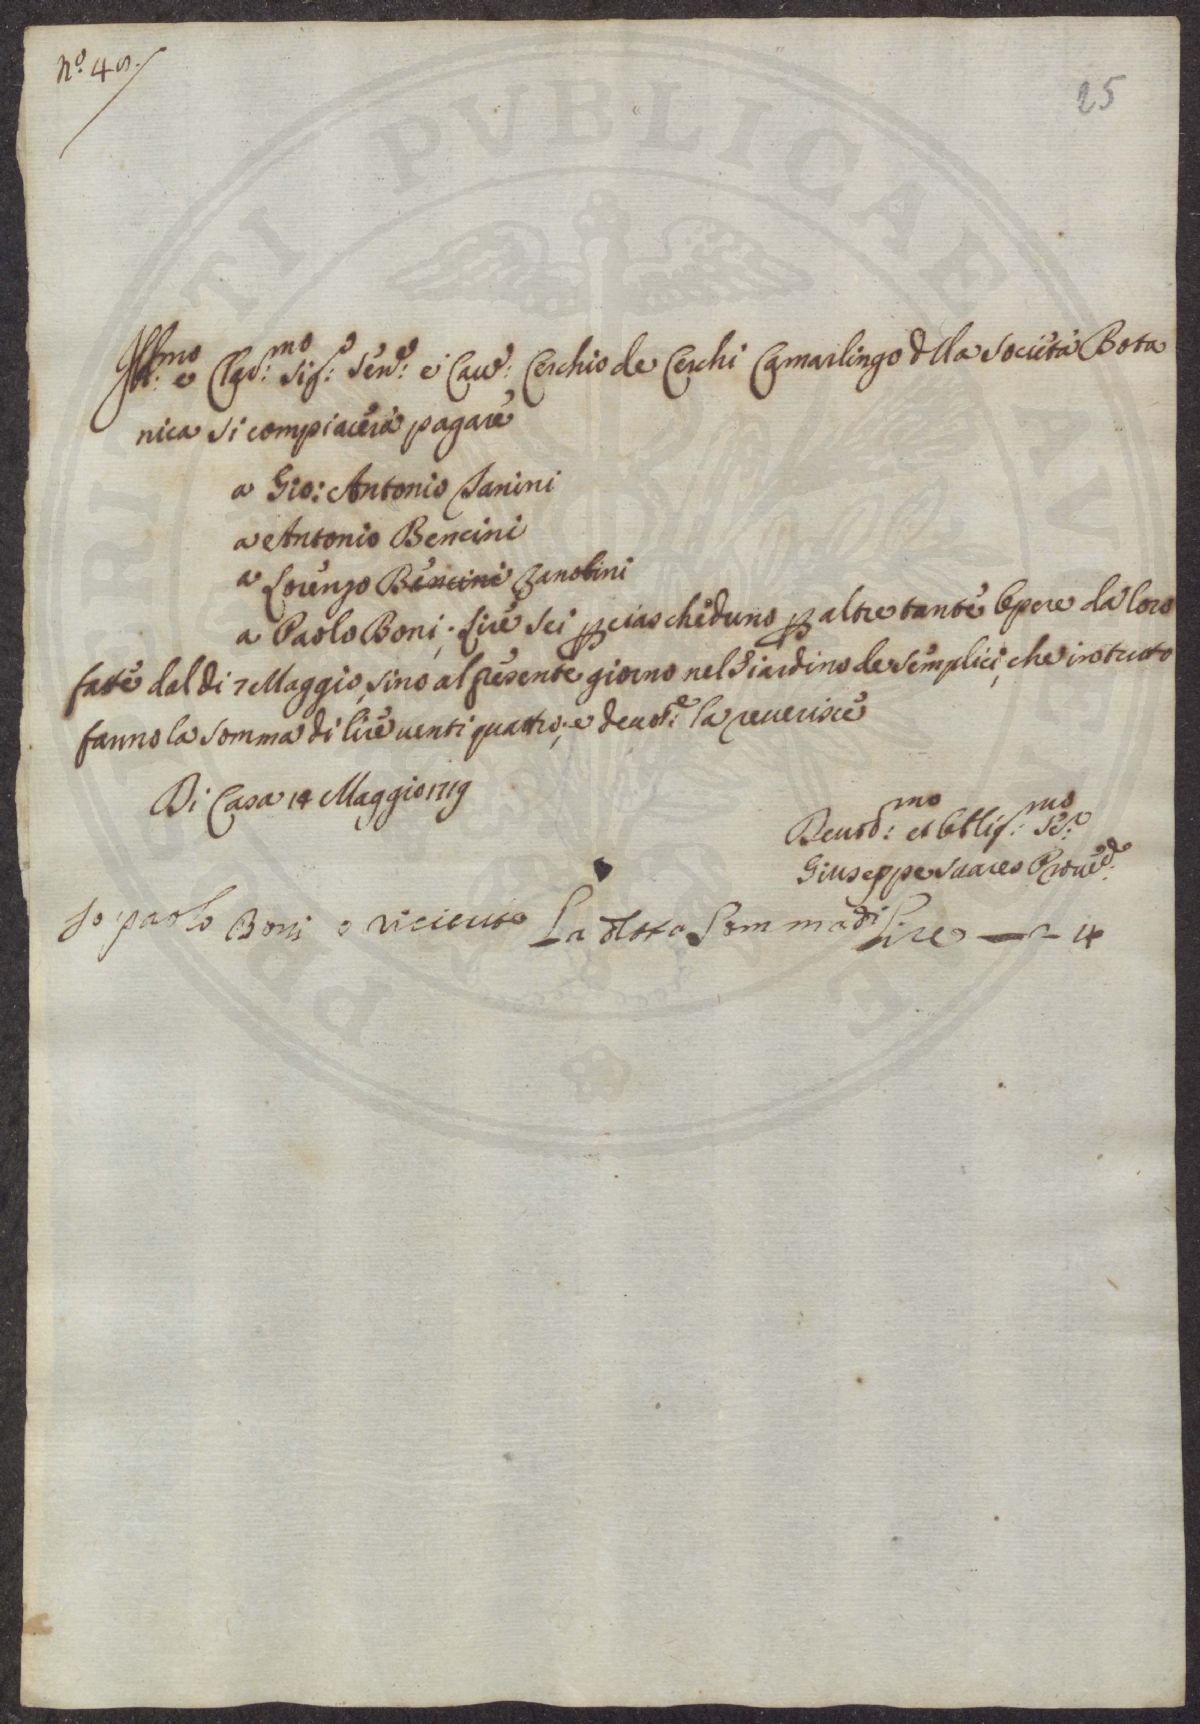 N.º 45.
25
Ill:mo e Clar:mo Sig:r Sen:re e Cav:re Cerchio de Cerchi Camarlingo della Società Bota
nica si compiacerà pagare
a Gio: Antonio Janini
a Antonio Bencini
a Lorenzo Bencini Zanobini
a Paolo Boni; Lire sei p ciascheduno p altretante Opere da loro
fatte dal di 7 Maggio, sino al presente giorno nel Giardino de Semplici, che in tutto
fanno la somma di lire venti quattro; e devot:e la reverisce
Di Casa 14 Maggio 1719
Devot:mo et Obblig:mo Se:re
Giuseppe Suares Proved:
Io paolo Boni o riceuto La detta Somma di Lire
PRVDENTI PVBLICAE VTILITATE